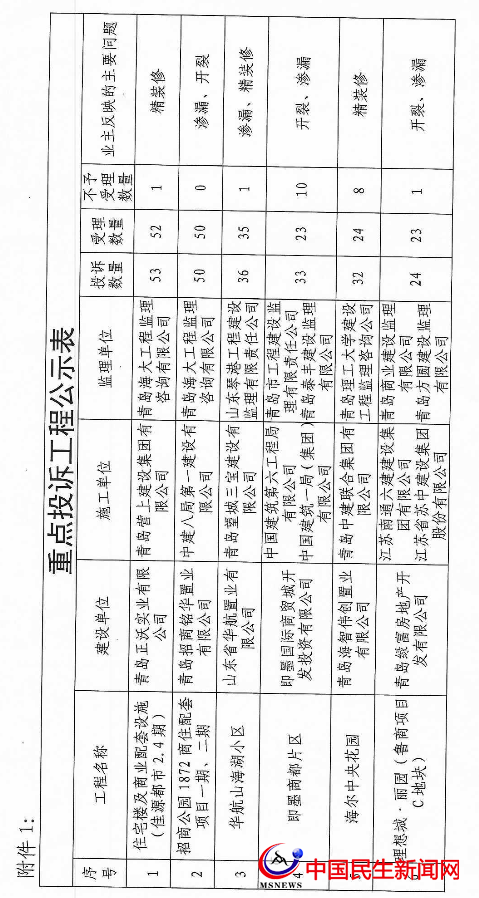 附件 1:
重点投诉工程公示表
序号 工程名称 建设单位 施工单位 监理单位 投诉数量 受理数量 不予受理数量 业主反映的主要问题
1 住宅楼及商业配套设施(佳源都市 2,4 期) 青岛正沃实业有限公司 青岛营上建设集团有限公司 青岛海大工程监理咨询有限公司 53 52 1 精装修
2 招商公园 1872 商住配套项目一期、二期 青岛招商铭华置业有限公司 中建八局第一建设有限公司 青岛海大工程监理咨询有限公司 50 50 0 渗漏、开裂
3 华航山海湖小区 山东省华航置业有限公司 青岛望城三宝建设有限公司 山东琴港工程建设监理有限责任公司 36 35 1 渗漏、精装修
4 即墨南都片区 即墨国际商贸城开发投资有限公司 中国建筑第六工程局有限公司 中国建筑一局(集团)有限公司 青岛市工程建设监理有限责任公司 青岛泰丰建设监理有限公司 33 23 10 开裂、渗漏
海尔中央花园 青岛海智伟创置业有限公司 青岛中建联合集团有限公司 青岛理工大学建设工程监理咨询公司 32 24 8 精装修
理想城·丽园(鲁商项目 C 地块) 青岛绿富房地产开发有限公司 江苏南通六建建设集团有限公司 江苏省苏中建设集团股份有限公司 青岛商业建设监理有限公司 青岛方圆建设监理有限公司 24 23 1 开裂、渗漏
MSNEWS
中国民生新闻网